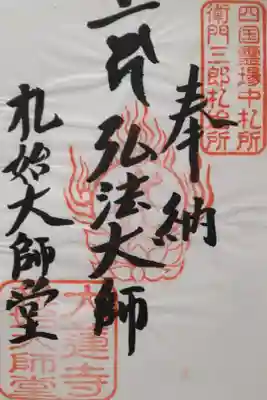 四国霊場中札所
衛門三郎札始所
奉納
弘法大師
札始大師堂
大蓮寺
大師堂